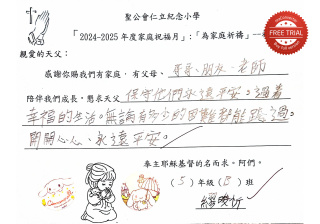 聖公會仁立紀念小學
「2024-2025 年度家庭祝福月」：「為家庭祈禱」
FREE TRIAL
親愛的天父：
感謝你賜我們有家庭，有父母、哥哥、朋友、老師
陪伴我們成長，懇求天父保守他們永遠平安。過着
幸福的生活。無論有多少的困難都能跨過。
開開心心、永遠平安。
奉主耶穌基督的名而求。阿們。
（5）年級（B）班